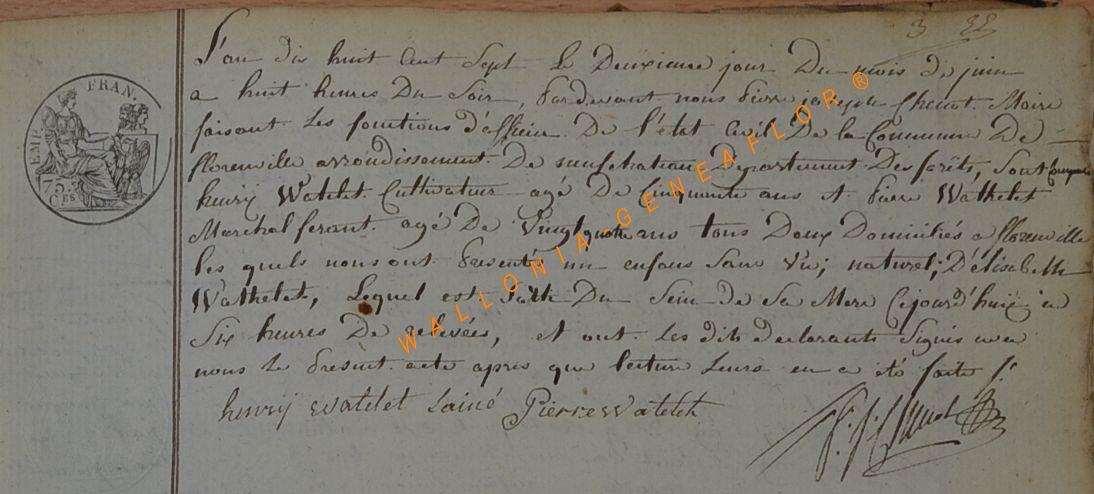 3 22
L'an dix huit Cent Sept le Deuxieme jour Du mois de juin
a huit heures Du Soir, Pardevant nous Pierre joseph Maire
faisant les fonctions d'officier De l'état Civil De la Commune De
florenville arrondissement De neufchateau Departement Des forêts, Sont Comparu
henrÿ Watelet Cultivateur agé De Cinquante ans et Pierre Wathelet
Maréchal ferant agé De Vingt quatre ans tous Deux Domiciliés a florenville
les quels nous ont Presenté un enfans Sans Vie; naturel; D'élisabeth
Wathelet, Lequel est Du Sein de Sa Mere Cejourd'huÿ a
Six heures De relevées, et ont les dits declarants Signés avec
nous le Present acte apres que lecture Leurs en a été faite
henrÿ watelet lainé Pierre watelet
EMP. FRAN.
75.
C.ES
WALLONIA-GENEAFLOR ®